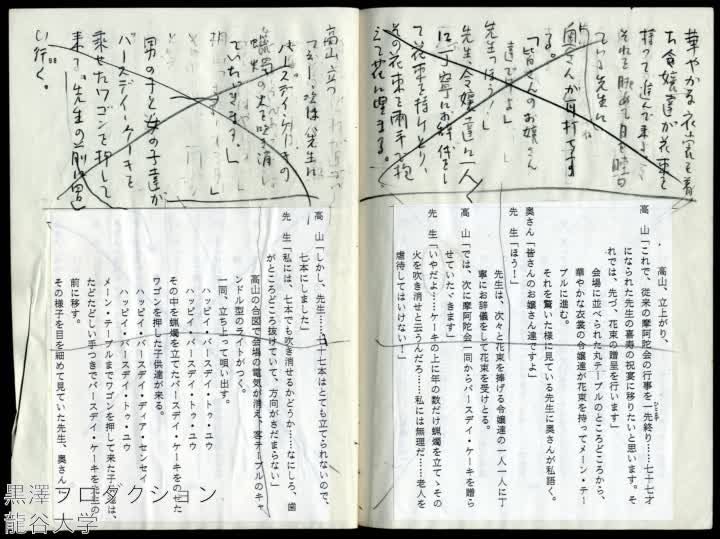 華やかな衣裳を着
た令嬢達が花束を
持って進んで来る。
それを眺めて目を瞠る
ている先生に
奥さんが耳打ちす
る。
「皆さんのお嬢さん
達ですよ」
先生「ほう！」
先生、令嬢達に一人一人
に丁寧にお辞儀をし
て花束を持ちとり、
その花束を両手で抱
えて花に埋まる。
高山、立上がり、
高　山「これで、従来の摩阿陀会の行事を一先終り……七十七才
になられた先生の喜寿の祝宴に移りたいと思います。そ
れでは、先づ、花束の贈呈を行います」
会場に並べられた丸テーブルのところどころから、
華やかな衣裳の令嬢達が花束を持ってメーン・テー
ブルに進む。
それを驚いた様に見ている先生に奥さんが私語く。
奥さん「皆さんのお嬢さん達ですよ」
先　生「ほう！」
先生は、次々と花束を捧げる令嬢達の一人一人に丁
寧にお辞儀をして花束を受けとる。
高　山「では、次に摩阿陀会一同からバースデイ・ケーキを贈ら
せていたゞきます」
先　生「いやだよ……ケーキの上に年の数だけ蝋燭を立てゝその
火を吹き消せと云うんだろ……私には無理だ……老人を
虐待してはいけない！」
高山、立つ
先生に
バースデイ・ケーキの
蝋燭の火を吹き消し
ていたゞきます」
男の子と女の子達が
バースデイ・ケーキを
乗せたワゴンを押して
来て、先生の前に置
い行く。
高　山「しかし、先生……七十七本はとても立てられないので、
七本にしました」
先　生「私には、七本でも吹き消せるかどうか……なにしろ、歯
がところどころ抜けていて、方向がさだまらない」
高山の合図で会場の電気が消え、客テーブルのキャ
ンドル型のライトがつく。
一同、立ち上って唄い出す。
ハッピイ・バースデイ・トゥ・ユウ
ハッピイ・バースデイ・トゥ・ユウ
その中を蝋燭を立てたバースデイ・ケーキをのせた
ワゴンを押した子供達が来る。
ハッピイ・バースデイ・ディア・センセイ
ハッピイ・バースデイ・トゥ・ユウ
メーン・テーブルまでワゴンを押して来た子供達は、
たどたどしい手つきでバースデイ・ケーキを先生の
前に移す。
その様子を目を細めて見ていた先生、奥さん
黒澤プロダクション
龍谷大学